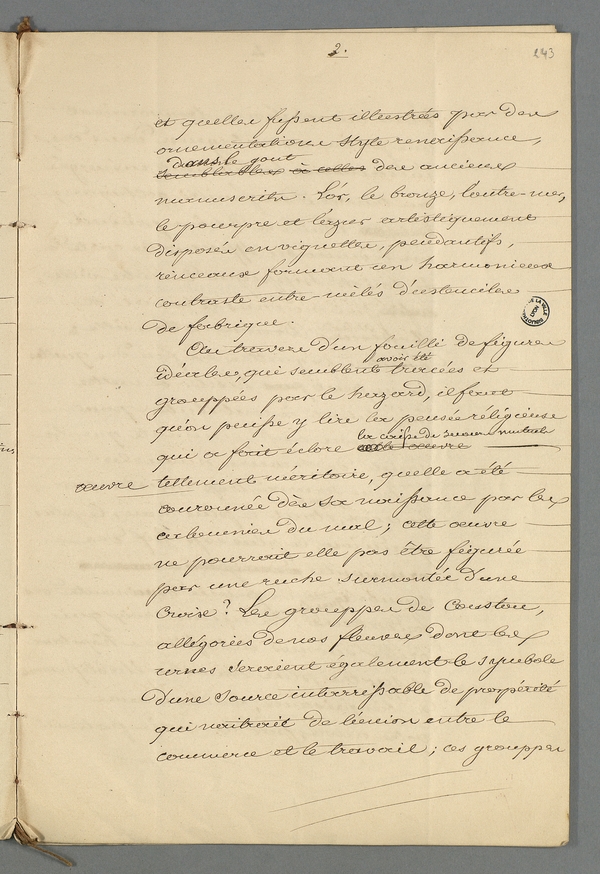 2.
243
et quelles fussent illustrées par des
ornementations style renaissance,
dans le gout
semblables à celles des anciens
manuscrits. L'or, le bronze, l'outre-mer,
le pourpre et l'azur artistiquement
disposés en vignettes, pendantifs,
rinceaux formant un harmonieux
contraste entre-mêlés d'ustenciles
de fabrique.
Au travers d'un fouilli de figures
avoir été
idéales, qui semblent tracées et
grouppées par le hazard, il faut
qu'on puisse y lire la pensée réligieuse
la caisse de secours mutuels
qui a fait éclore cette œuvre
œuvre tellement méritoire, quelle a été
couronnée dès sa naissance par les
calomnies du mal ; cette œuvre
ne pourrait elle pas être figurée
par une ruche surmontée d'une
Croix ? Les grouppes de Coustou,
allégories de nos fleuves dont les
urnes seraient également le symbole
d'une source intarrissable de prospérité
qui naitrait de l'union entre le
commerce et le travail ; ces grouppes